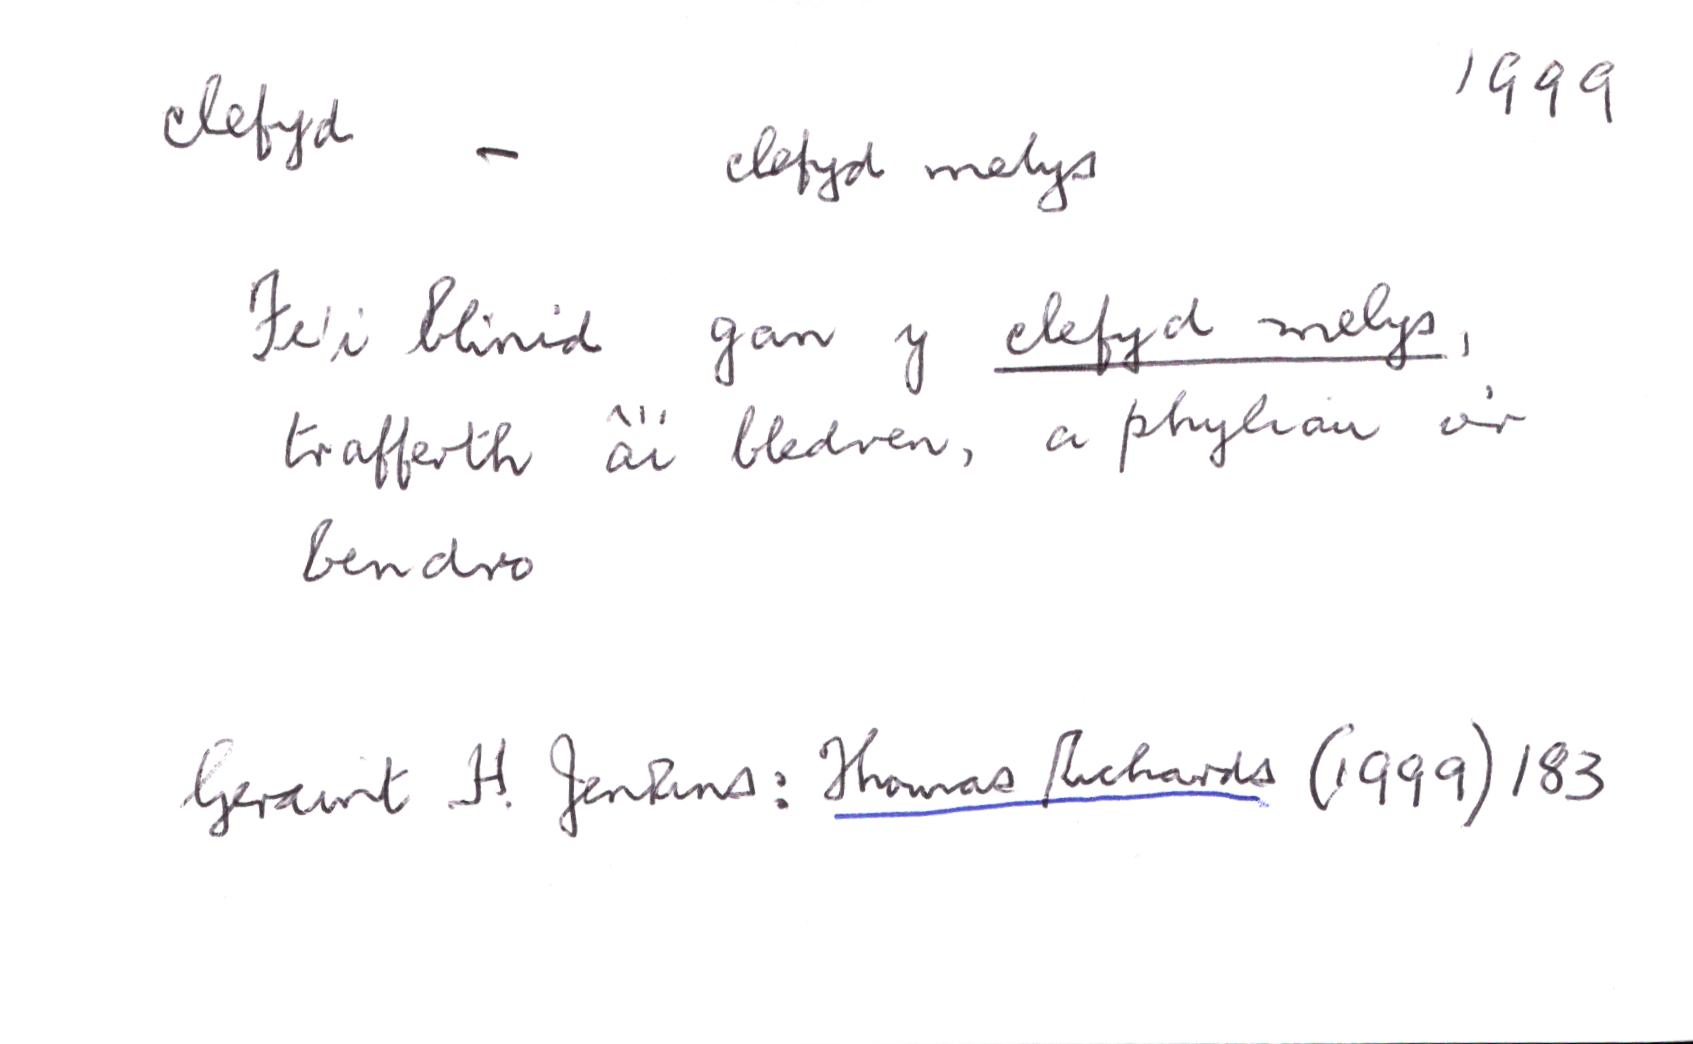 1999
clefyd - clefyd melys
Fe'i blinid gan y clefyd melys,
trafferth â'i bledren, a phyliau o'r
bendro
Geraint H. Jenkins: Thomas Richards (1999) 183